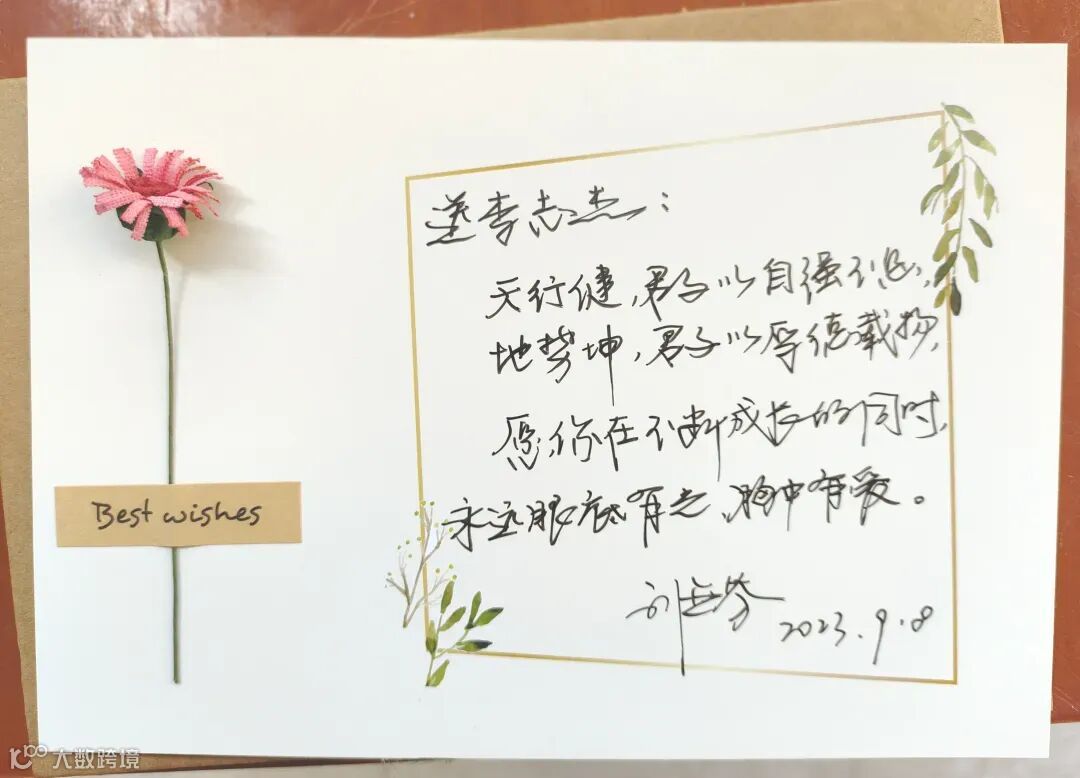 送李志杰:
天行健,君子以自强不息,
地势坤,君子以厚德载物,
愿你在不断成长的同时,
永远眼底有光,胸中有爱。
2023.9.8
Best wishes
大数跨境